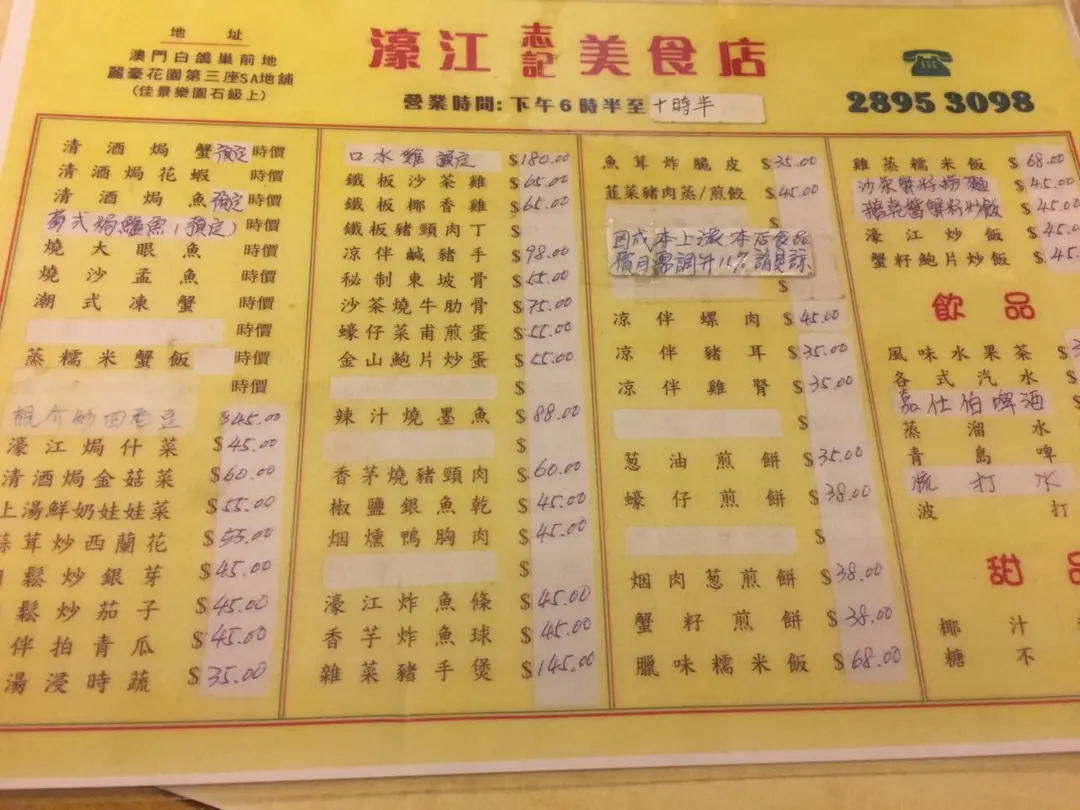 地 址
澳門白鴿巢前地
麗豪花園第三座SA地舖
(佳景樂園石級上)
濠江志記美食店
營業時間：下午6時半至十時半
2895 3098
清酒焗蟹 預定 時價
清酒焗花蝦 時價
清酒焗魚 預定 時價
葡式焗鱸魚(預定) 時價
燒大眼魚 時價
燒沙孟魚 時價
潮式凍蟹 時價
時價
蒸糯米蟹飯 時價
時價
$45.00
濠江焗什菜 $45.00
清酒焗金菇菜 $60.00
上湯鮮奶娃娃菜 $55.00
蒜茸炒西蘭花 $55.00
鬆炒銀芽 $45.00
鬆炒茄子 $45.00
伴拍青瓜 $45.00
湯浸時蔬 $35.00
口水雞 預定 $180.00
鐵板沙茶雞 $65.00
鐵板椰香雞 $65.00
鐵板豬頸肉丁 $
凉伴鹹豬手 $98.00
秘制東坡骨 $55.00
沙茶燒牛肋骨 $75.00
蠔仔菜甫煎蛋 $55.00
金山鮑片炒蛋 $55.00
$
辣汁燒墨魚 $88.00
$
香茅燒豬頸肉 $60.00
椒鹽銀魚乾 $45.00
烟燻鴨胸肉 $45.00
$
濠江炸魚條 $45.00
香芋炸魚球 $45.00
雜菜豬手煲 $145.00
魚茸炸脆皮 $35.00
韮菜豬肉蒸/煎餃 $45.00
$
因成本上漲,本店食品
價目需調升11% 請見諒
$
凉伴螺肉 $45.00
凉伴豬耳 $35.00
凉伴雞腎 $35.00
$
葱油煎餅 $35.00
蠔仔煎餅 $38.00
$
烟肉葱煎餅 $38.00
蟹籽煎餅 $38.00
臘味糯米飯 $68.00
雞蒸糯米飯 $68.00
沙茶蟹籽撈麵 $45.00
蟹籽炒飯 $45.00
濠江炒飯 $45.0
蟹籽鮑片炒飯 $45.
飲品
風味水果茶 $
各式汽水 $
嘉仕伯啤酒 $
蒸溜水
青島啤
梳打水
波打
甜品
椰汁
糖不